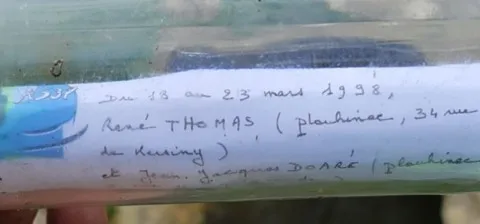 Du 13 au 23 mars 1998,
René THOMAS (plouhinec, 34 rue
de Kersiny)
et Jean-Jacques DOARÉ (plouhinec